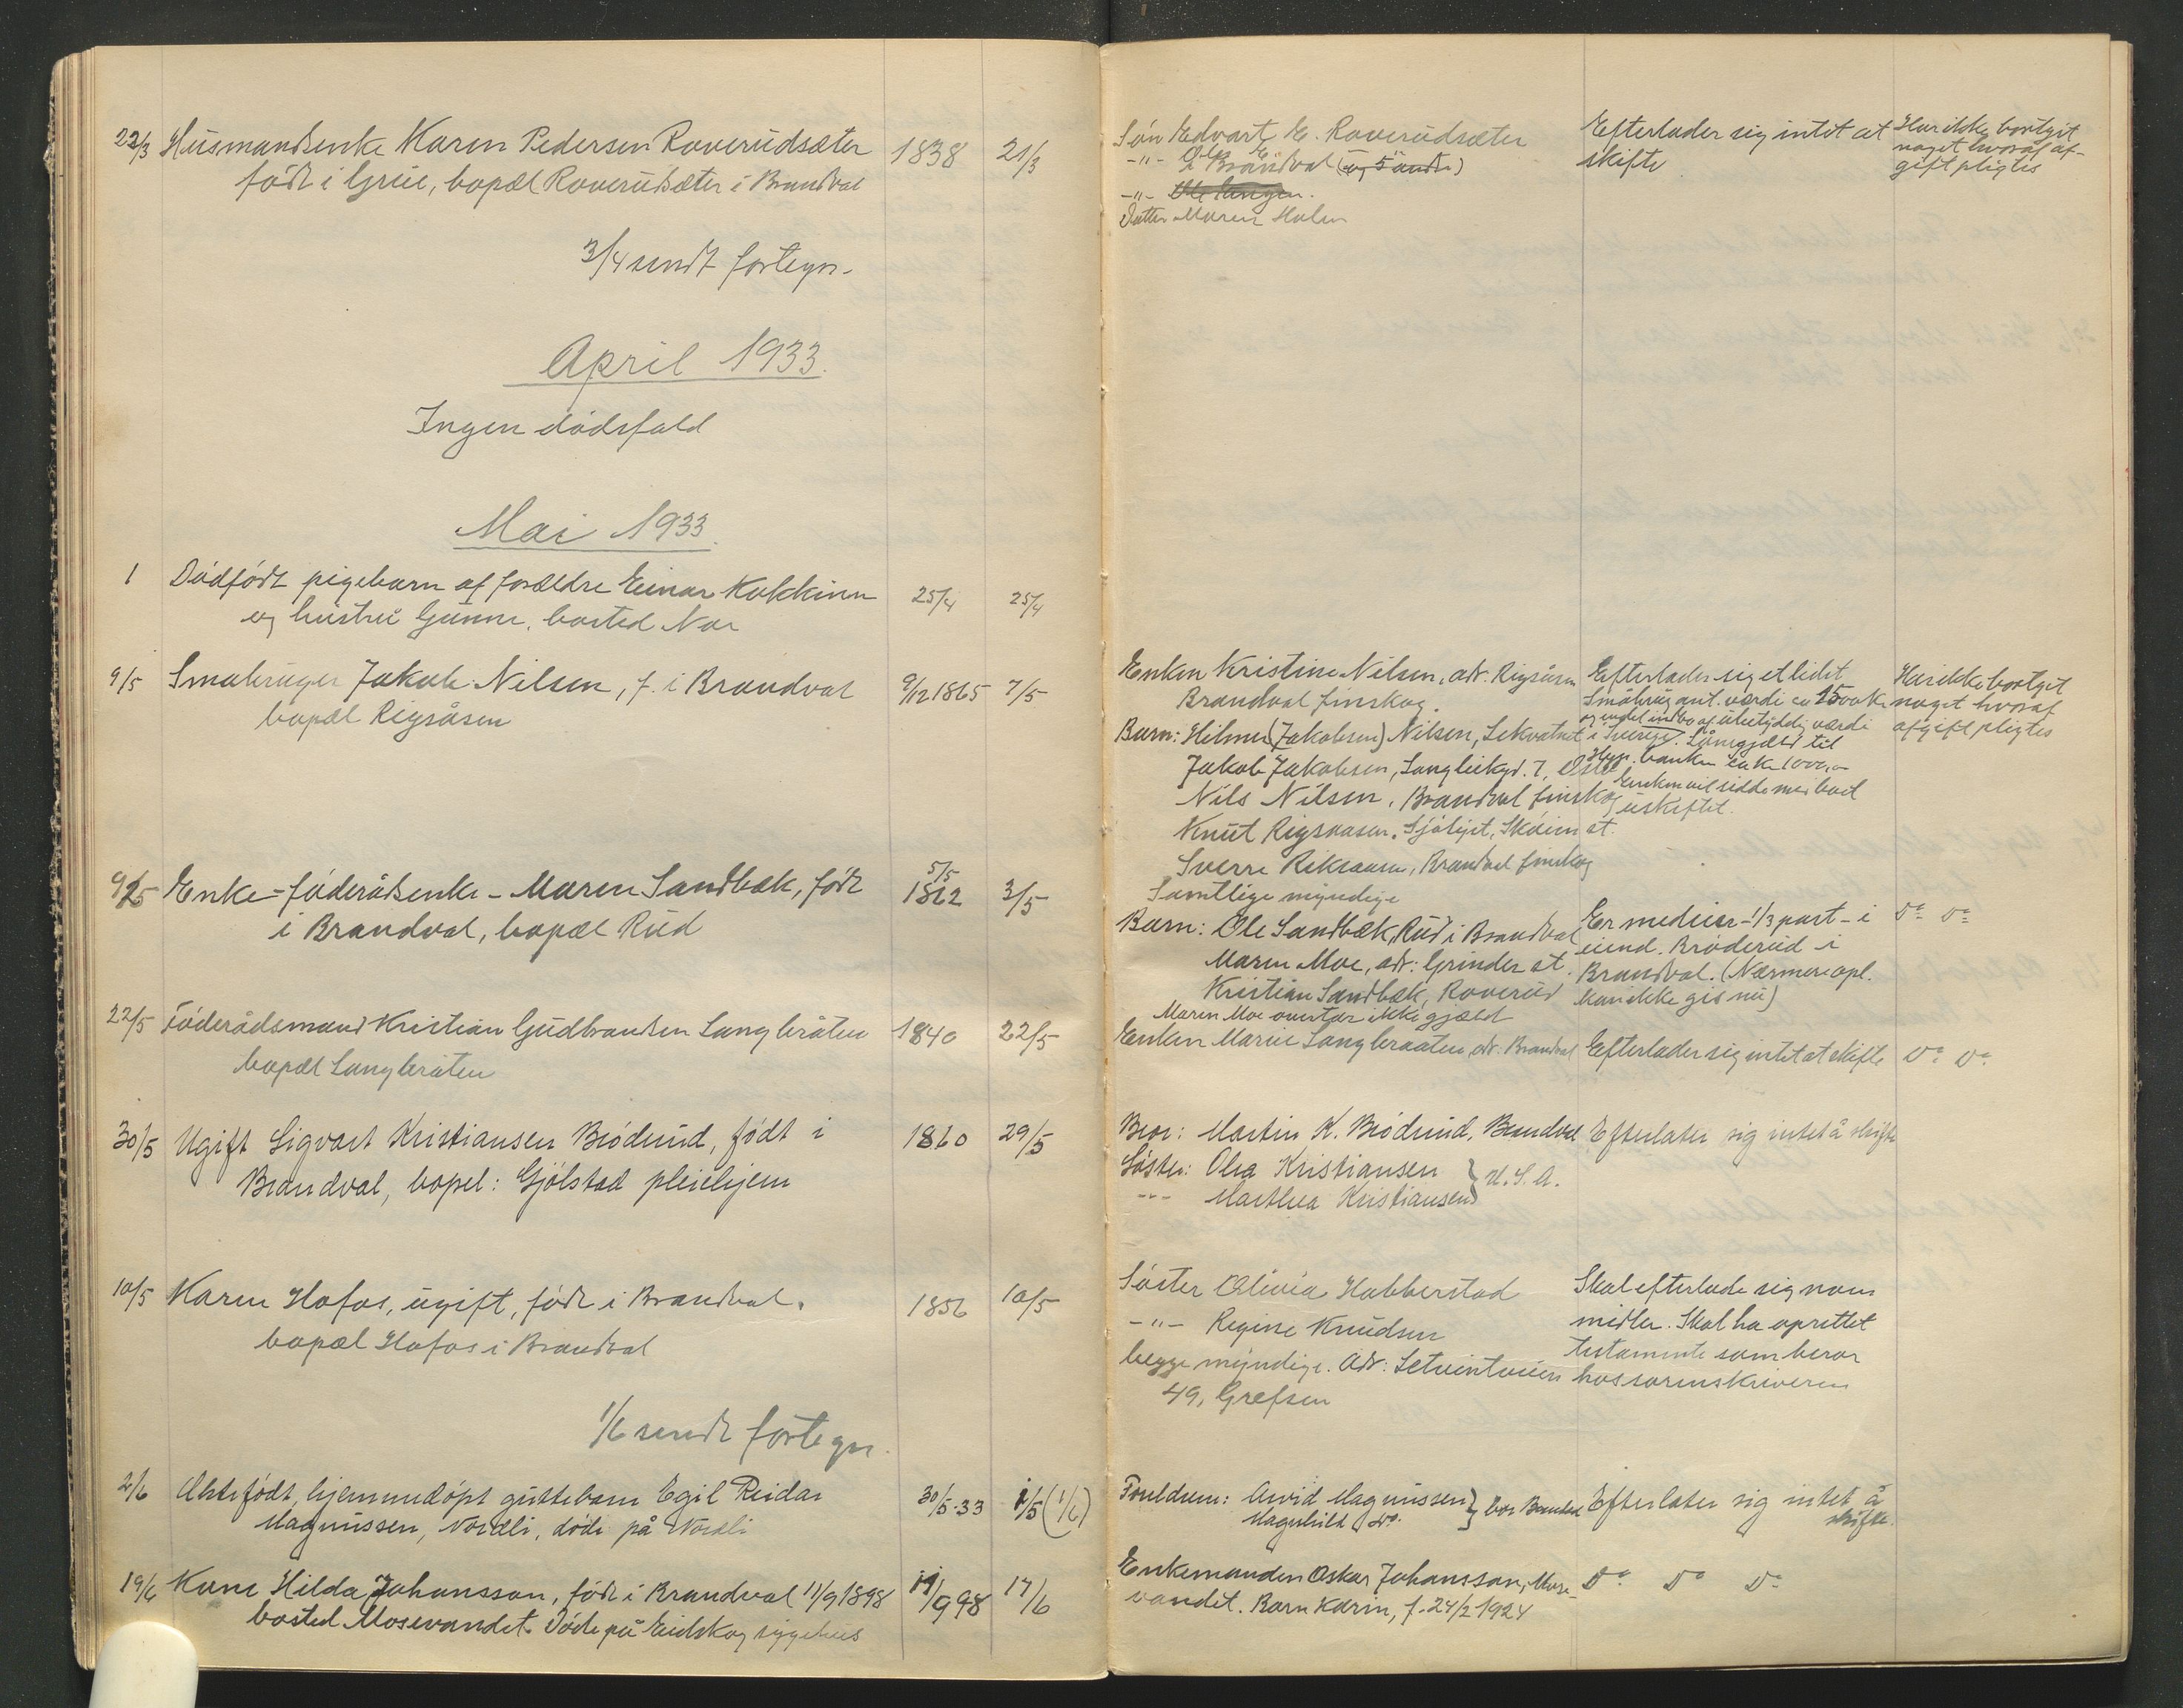 22/3 Husmandsenke Karen Pedersen Roverudsæter 1838 21/3
født i Grue, bopæl Roverudsæter i Brandval
3/4 sendt fortegn.
April 1933.
Ingen dødsfald
Mai 1933.
1 Dødfødt pigebarn af forældre Einar Kokkinn 25/4 25/4
og hustru Gunnr, bosted Nor
9/5 Småbruger Jakob Nilsen, f. i Brandval 9/12 1865 7/5
bopæl Rigsåsen
9/5 Enke - føderådsenke - Maren Sandbæk, født 5/5 1862 3/5
i Brandval, bopæl Rud
22/5 Føderådsmand Kristian Gudbrandsen Langbråten 1840 22/5
bopæl Langbråten
30/5 Ugift Sigvart Kristiansen Brøderud, født i 1860 29/5
Brandval, bopel: Gjølstad pleiehjem
10/5 Karen Hofos, ugift, født i Brandval. 1856 10/5
bopæl Hofos i Brandval
1/6 sendt fortegn.
2/6 Ektefødt, hjemmedøpt guttebarn Egil Reidar 30/5-33 1/5 (1/6)
Magnussen, Nordli, døde på Nordli
19/6 Kone Hilda Johansson, født i Brandval 11/9 1898 11/9 98 17/6
bosted Mosevandet. Døde på Eidskog sygehus
Søn Edvart E. Roverudsæter
-"- Ole E.
i Brandval (og 5 andre)
-"- Ole Langen.
Datter Maren Holen
Efterlader sig intet at
skifte
Har ikke bortgit
noget hvoraf af-
gift pligtes
Enken Kristine Nilsen, adr. Rigsåsen
Brandval finskog.
Barn: Hilmer (Jakobsen) Nilsen, Lekvatnet i Sverige.
Jakob Jakobsen, Langliekgd. 7, Oslo
Nils Nilsen, Brandval finskog
Knut Rigsaasen, Sjølyst, Skøien st.
Sverre Riksaasen, Brandval finskog
Samtlige myndige
Efterlader sig et lidet
Småbrug ant. værdi ca 1500 k.
og endel indbo af ubetydelig værdi
Lånegjæld til
Hyp. banken ca kr 1000,-
Enken vil sidde med boet
uskiftet.
Har ikke bortgit
noget hvoraf
afgift pligtes
Barn: Ole Sandbæk, Rud i Brandval
Maren Moe, adr: Grinder st.
Kristian Sandbæk, Roverud
Maren Moe overtar ikke gjæld
Er medeier - 1/3 part - i
eiend. Brøderud i
Brandval. (Nærmere opl.
kan ikke gis nu)
Do Do
Enken Marie Langbraaten, adr. Brandval
Efterlader sig intet at skifte
Do Do
Bror: Martin K. Brøderud, Brandval
Efterlater sig intet å skifte
Søster: Olea Kristiansen
-"- Marthea Kristiansen } U.S.A.
Søster Olivia Habberstad
-"- Regine Knudsen
begge myndige. Adr: Setveintveien
49, Grefsen
Skal efterlade sig noen
midler. Skal ha oprettet
testamente som beror
hos sorenskriveren
Foreldrene: Arvid Magnussen } bor Brandval
Magnhild Do.
Efterlater sig intet å
skifte.
Enkemanden Oskar Johansson, Mose-
vandet. Barn Karin, f. 24/2 1924
Do Do Do